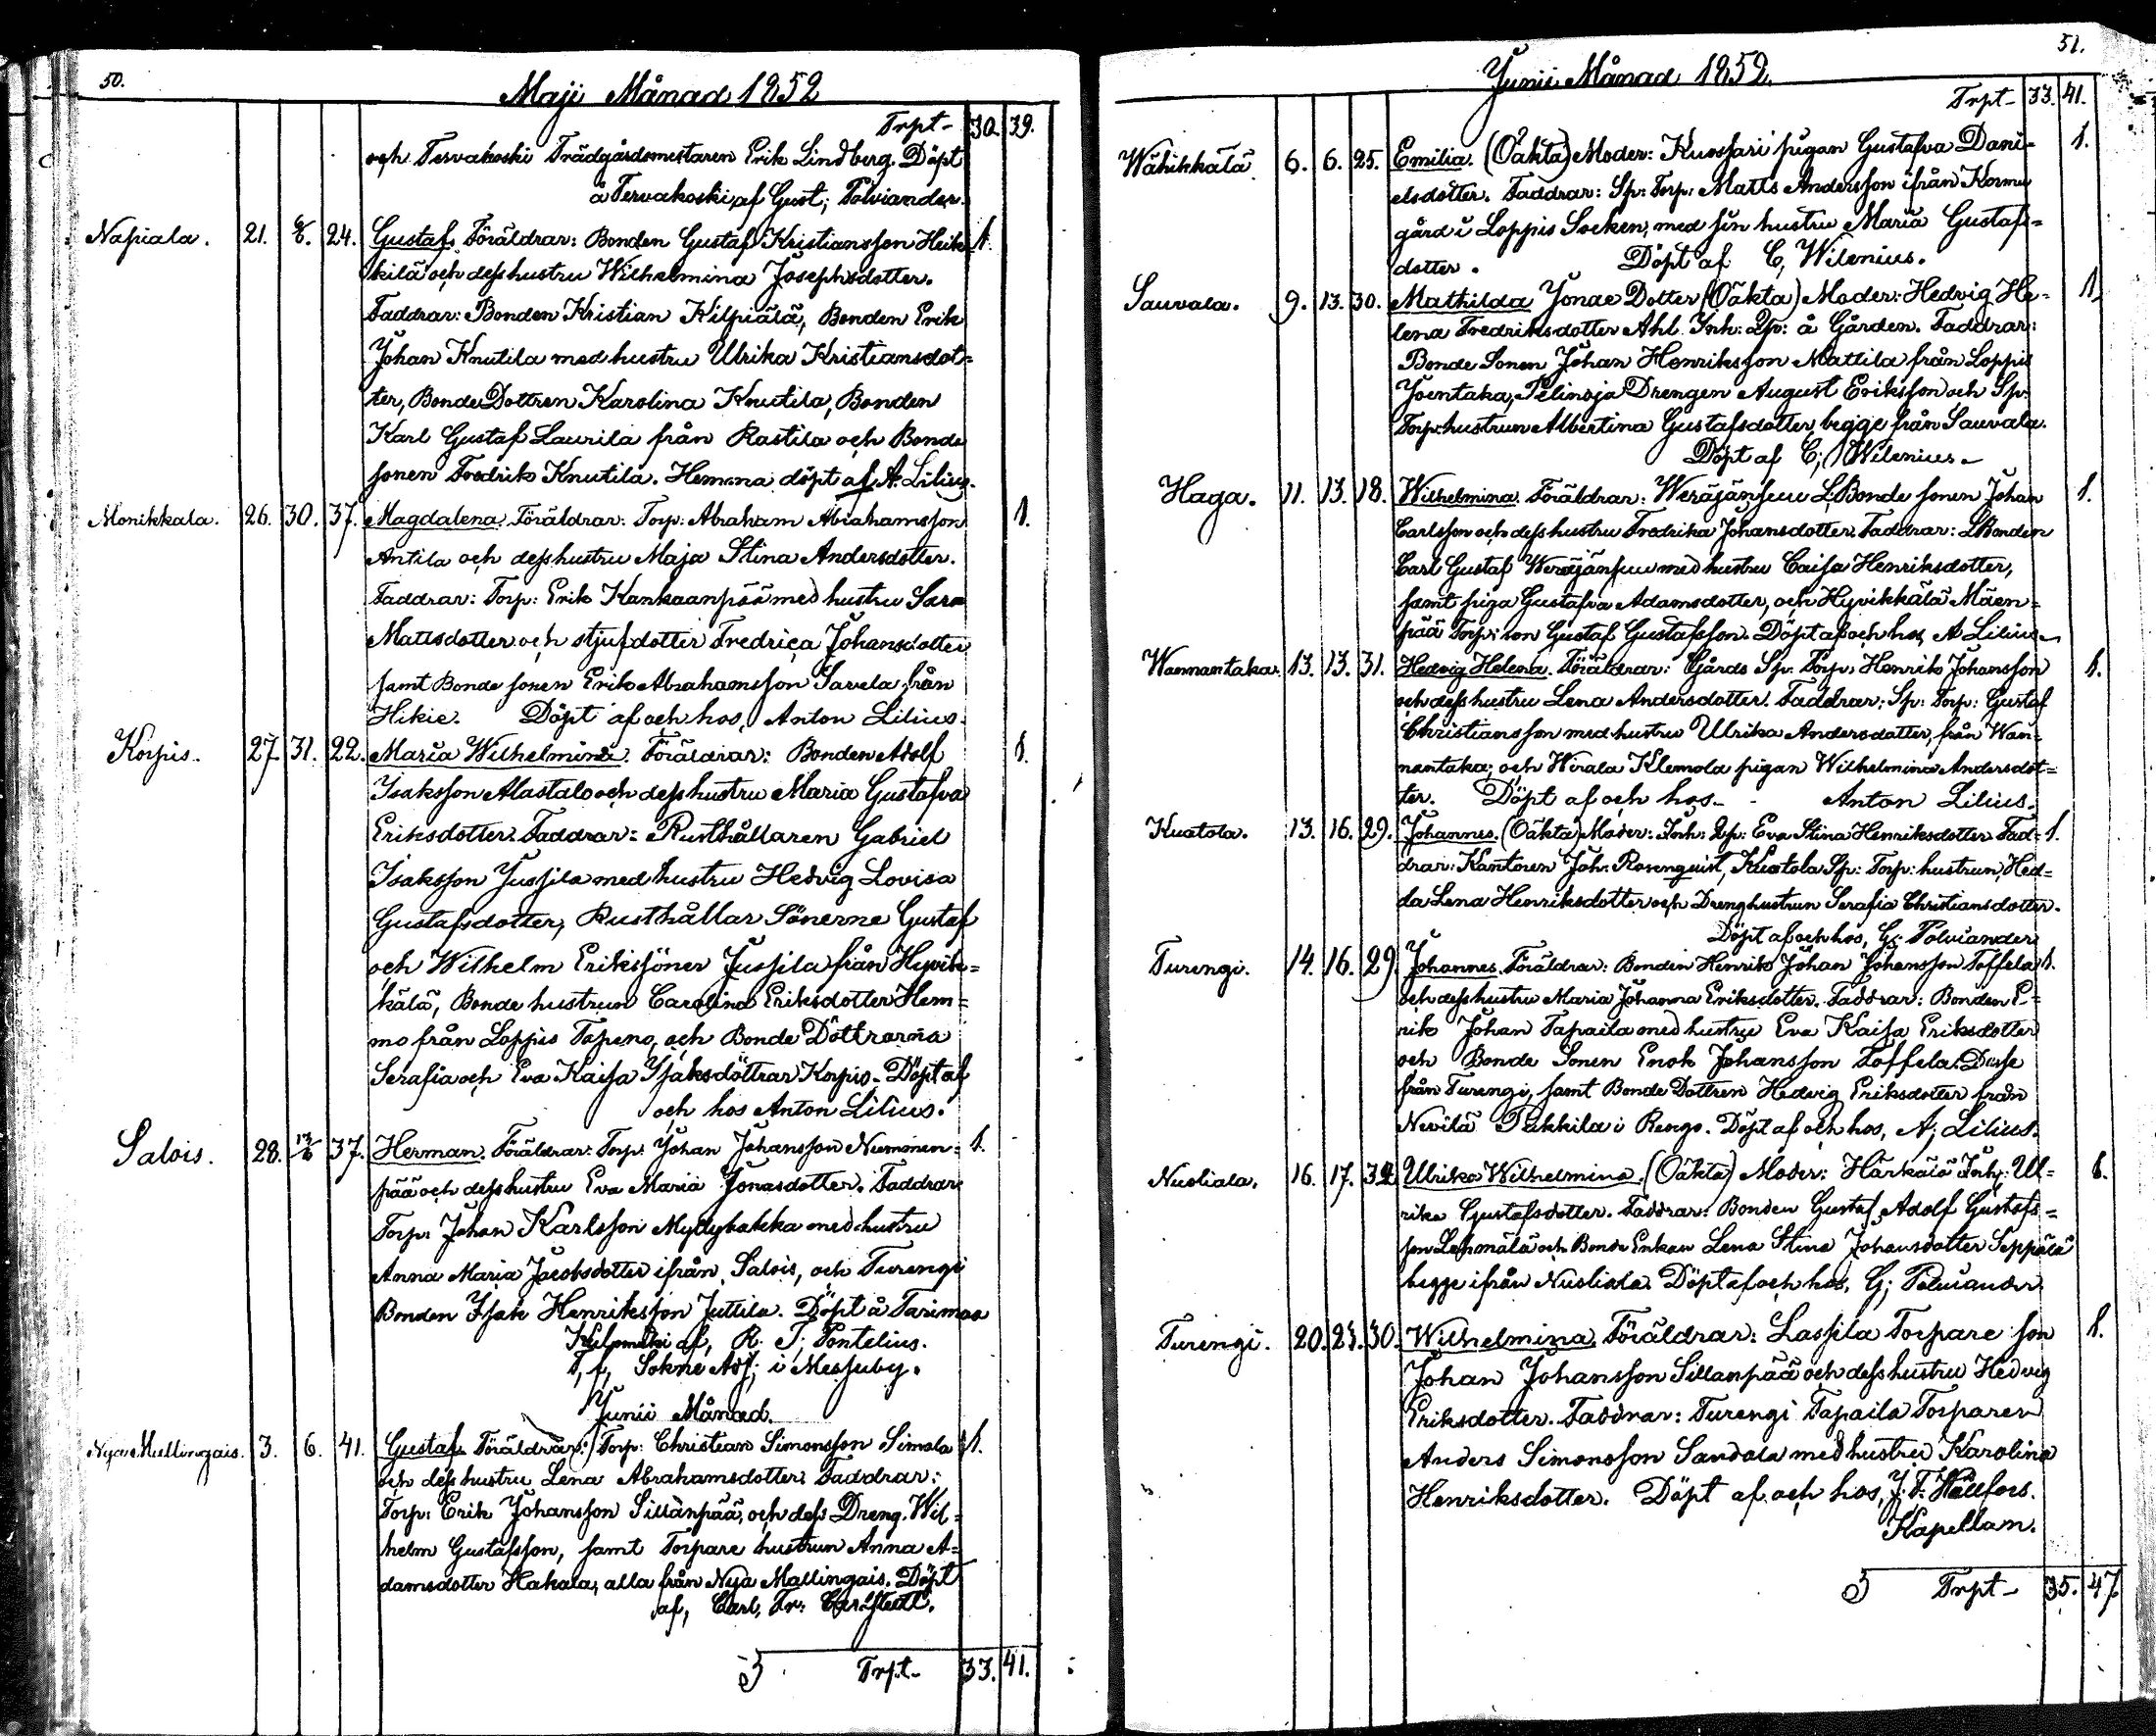 50.
Maji Månad 1852
Trpt- 30. 39.
och Tervakoski Trädgårdsmestaren Erik Lindberg. Döpt
å Tervakoski, af Gust; Polviander.
Napiala. 21. 24. Gustaf. Föräldrar: Bonden Gustaf Kristiansson Heik- 1.
kilä och dess hustru Wilhelmina Josephsdotter.
Faddrar: Bonden Kristian Kilpiälä, Bonden Erik
Johan Knutila med hustru Ulrika Kristiansdot=
ter, Bonde Dottren Karolina Knutila, Bonden
Karl Gustaf Laurila från Rastila och Bonde
sonen Fredrik Knutila. Hemma döpt af A. Lilius.
Monikkala. 26. 30. 37. Magdalena. Föräldrar: Torp: Abraham Abrahamsson 1.
Antila och dess hustru Maja Stina Andersdotter.
Faddrar: Torp: Erik Kankaanpää med hustru Sara
Mattsdotter och stjufdotter Fredrica Johansdotter
samt Bonde sonen Erik Abrahamsson Savela från
Hikie. Döpt af och hos, Anton Lilius.
Korpis. 27. 31. 22. Maria Wilhelmina. Föräldrar: Bonden Adolf 1.
Isaksson Alastalo och dess hustru Maria Gustafva
Eriksdotter. Faddrar: Rusthållaren Gabriel
Isaksson Jussila med hustru Hedvig Lovisa
Gustafsdotter, Rusthållar Sönerne Gustaf
och Wilhelm Eriksöner Jussila från Hyvik=
kälä, Bonde hustrun Carolina Eriksdotter Hem=
mo från Loppis Topeno, och Bonde Döttrarna
Serafia och Eva Kaisa Isaksdöttrar Korpis. Döpt af
och hos Anton Lilius.
Salois. 28. 37. Herman. Föräldrar: Torp: Johan Johansson Nummen= 1.
pää och dess hustru Eva Maria Jonasdotter. Faddrar:
Torp: Johan Karlsson Myllykakka med hustru
Anna Maria Jacobsdotter ifrån Salois, och Turengi
Bonden Isak Henriksson Juttila. Döpt å Tarimaa
af, R. T; Pontelius.
T, f, Sokne Adj; i Messuby.
Junii Månad.
Nya Mallingais. 3. 6. 41. Gustaf. Föräldrar: Torp: Christian Simonsson Simola 1.
och dess hustru Lena Abrahamsdotter. Faddrar:
Torp: Erik Johansson Sillanpää, och dess Dreng. Wil=
helm Gustafsson, samt Torpare hustrun Anna A=
damsdotter Hakala, alla från Nya Mallingais. Döpt
af, Carl, Fr: Carlstedt.
Trpt- 33. 41.
51.
Junii Månad 1852.
Trpt- 33. 41.
Wähikkälä 6. 6. 25. Emilia. (Oäkta) Moder: Kuossari pigan Gustafva Dani= 1.
elsdotter. Faddrar: Sp: Torp: Matts Andersson ifrån Kormu
gård i Loppis Socken, med sin hustru Maria Gustafs=
dotter. Döpt af C, Wilenius.
Sauvala. 9. 13. 30. Mathilda Jonae Dotter (Oäkta) Moder: Hedvig He= 1.
lena Fredriksdotter Ahl. Inh: Qp: å Gården. Faddrar:
Bonde Sonen Johan Henriksson Mattila från Loppis
Joentaka, Pelinoja Drengen August Eriksson och Sp:
Torp: hustrun Albertina Gustafsdotter, begge från Sauvala.
Döpt af C; Wilenius.
Haga. 11. 13. 18. Wilhelmina. Föräldrar: Weräjänsuu L: Bonde sonen Johan 1.
Carlsson och dess hustru Fredrika Johansdotter. Faddrar: L: Bonden
Carl Gustaf Weräjänsuu med hustru Caisa Henriksdotter,
samt piga Gustafva Adamsdotter, och Hyvikkälä Mäen=
pää Torp: son Gustaf Gustafsson. Döpt af och hos, A. Lilius.
Wannantaka. 13. 13. 31. Hedvig Helena. Föräldrar: Gårds Sp: Torp: Henrik Johansson 1.
och dess hustru Lena Andersdotter. Faddrar: Sp: Torp: Gustaf
Christiansson med hustru Ulrika Andersdotter, från Wan=
nantaka; och Wirala Klemola pigan Wilhelmina Andersdot=
ter. Döpt af och hos. Anton Lilius.
Kuotola. 13. 16. 29. Johannes. (Oäkta) Moder: Inh: Qp: Eva Stina Henriksdotter. Fad= 1.
drar: Kantoren Joh: Rosenquist, Kuotola Sp: Torp: hustrun, Hed=
da Lena Henriksdotter och Drenghustrun Serafia Christiansdotter.
Döpt af och hos, G; Polviander.
Turengi. 14. 16. 29. Johannes. Föräldrar: Bonden Henrik Johan Johansson Toffela 1.
och dess hustru Maria Johanna Eriksdotter. Faddrar: Bonden E=
rik Johan Tapaila med hustru Eva Kaisa Eriksdotter
och Bonde Sonen Enok Johansson Toffela. Desse
från Turengi, samt Bonde Dottren Hedvig Eriksdotter från
Nevilä Takkila i Rengo. Döpt af och hos, A; Lilius.
Nuoliala. 16. 17. 34. Ulrika Wilhelmina. (Oäkta) Moder: Härkälä Inh: Ul= 1.
rika Gustafsdotter. Faddrar: Bonden Gustaf Adolf Gustafs=
son Lehmälä och Bonde Enkan Lena Stina Johansdotter Seppälä
begge ifrån Nuoliala. Döpt af och hos, G; Polviander.
Turengi. 20. 23. 30. Wilhelmina. Föräldrar: Lassila Torpare son 1.
Johan Johansson Sillanpää och dess hustru Hedvig
Eriksdotter. Faddrar: Turengi Tapaila Torparen
Anders Simonsson Sandola med hustru Karolina
Henriksdotter. Döpt af och hos, J. F. Hällfors.
Kapellan.
Trpt- 35. 47